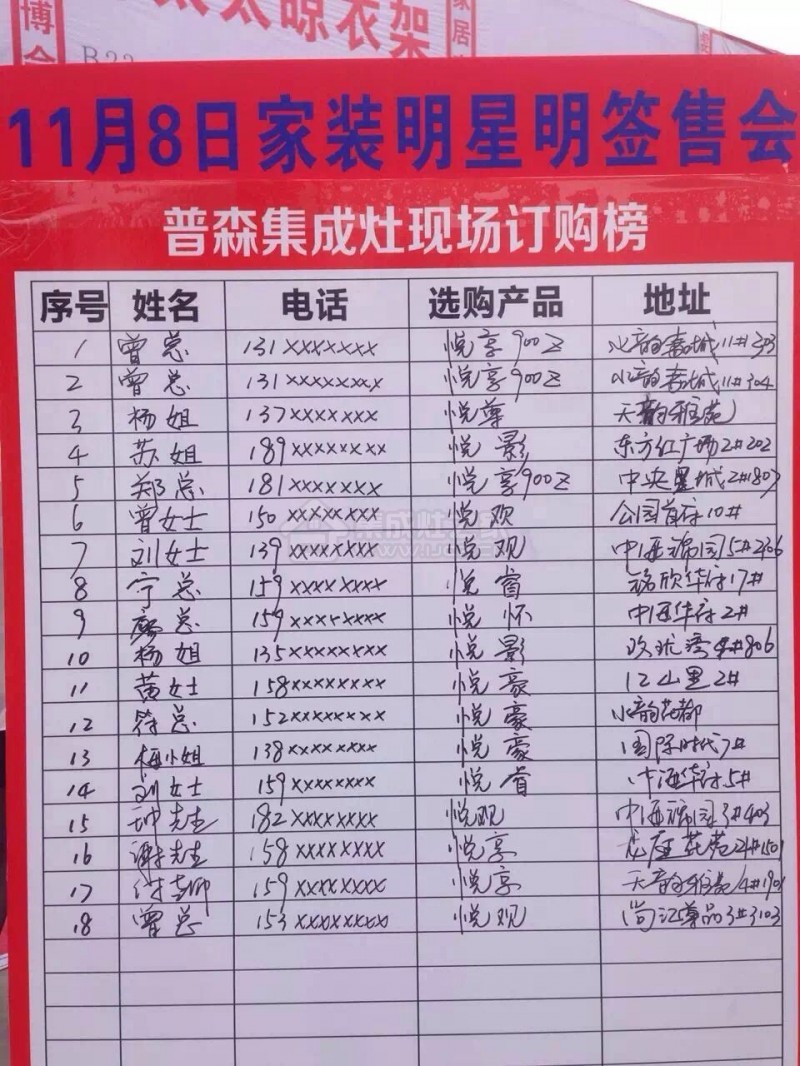 太太晾衣架
11月8日家装明星明签售会
普森集成灶现场订购榜
序号 姓名 电话 选购产品 地址
1 曾总 131xxxxxxxx 悦享900Z 水韵嘉城11#303
2 曾总 131xxxxxxxx 悦享900Z 水韵嘉城11#304
3 杨姐 137xxxxxxxx 悦尊 天韵雅苑
4 苏姐 189xxxxxxxx 悦影 东方红广场2#202
5 郑总 181xxxxxxxx 悦享900Z 中央星城2#1807
6 曾女士 150xxxxxxxx 悦欢 公园首府10#
7 刘女士 139xxxxxxxx 悦观 中海锦园5#2706
8 宁总 159xxxxxxxx 悦睿 铭欣华府17#
9 廖总 159xxxxxxxx 悦怀 中海华府2#
10 杨姐 135xxxxxxxx 悦影 4#806
11 黄女士 158xxxxxxxx 悦豪 江山里2#
12 符总 152xxxxxxxx 悦豪 水韵花都
13 梅小姐 138xxxxxxxx 悦豪 国际时代7#
14 刘女士 159xxxxxxxx 悦睿 中海华府5#
15 坤先生 182xxxxxxxx 悦观 中海锦园3#403
16 谢先生 158xxxxxxxx 悦享 龙庭花苑2#1501
17 159xxxxxxxx 悦享 天韵雅苑4#1901
18 曾总 153xxxxxxxx 悦观 尚江尊品3#3103